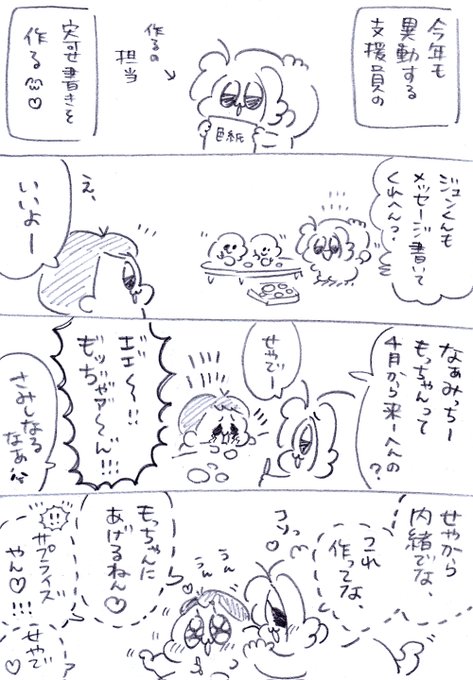 今年も
異動する
支援員の
作るの
担当
色紙
寄せ書きを
作る♡
ジュンくんも
メッセージ書いて
くれへん？
え、
いいよー
なぁみっちー
もっちゃんって
4月から来ーへんの
？
せやでー
エエ〜!!
もッぢゃァ〜ん!!!
さみしなる
なあ
せやから
内緒でな、
これ
作ってな、
コソッ
うん
うん
もっちゃんに
あげるねん♡
サプライズ
やん♡!!!
せやで
♡